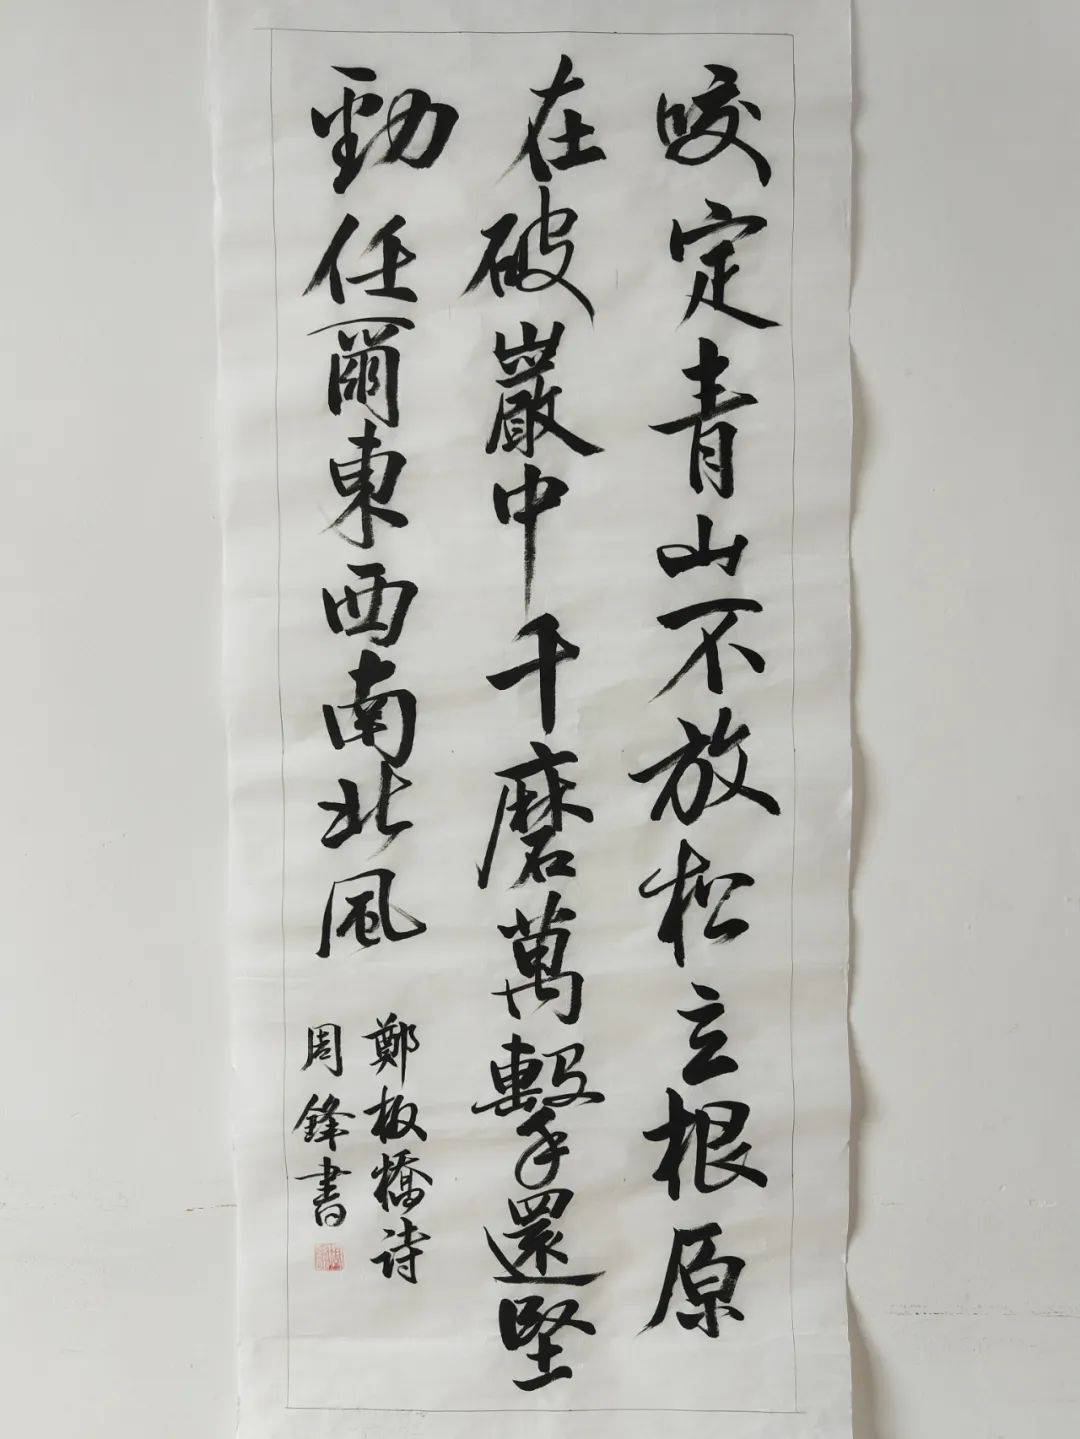 咬定青山不放松立根原
在破巖中千磨萬擊還堅
勁任爾東西南北風
鄭板橋詩
周鋒書